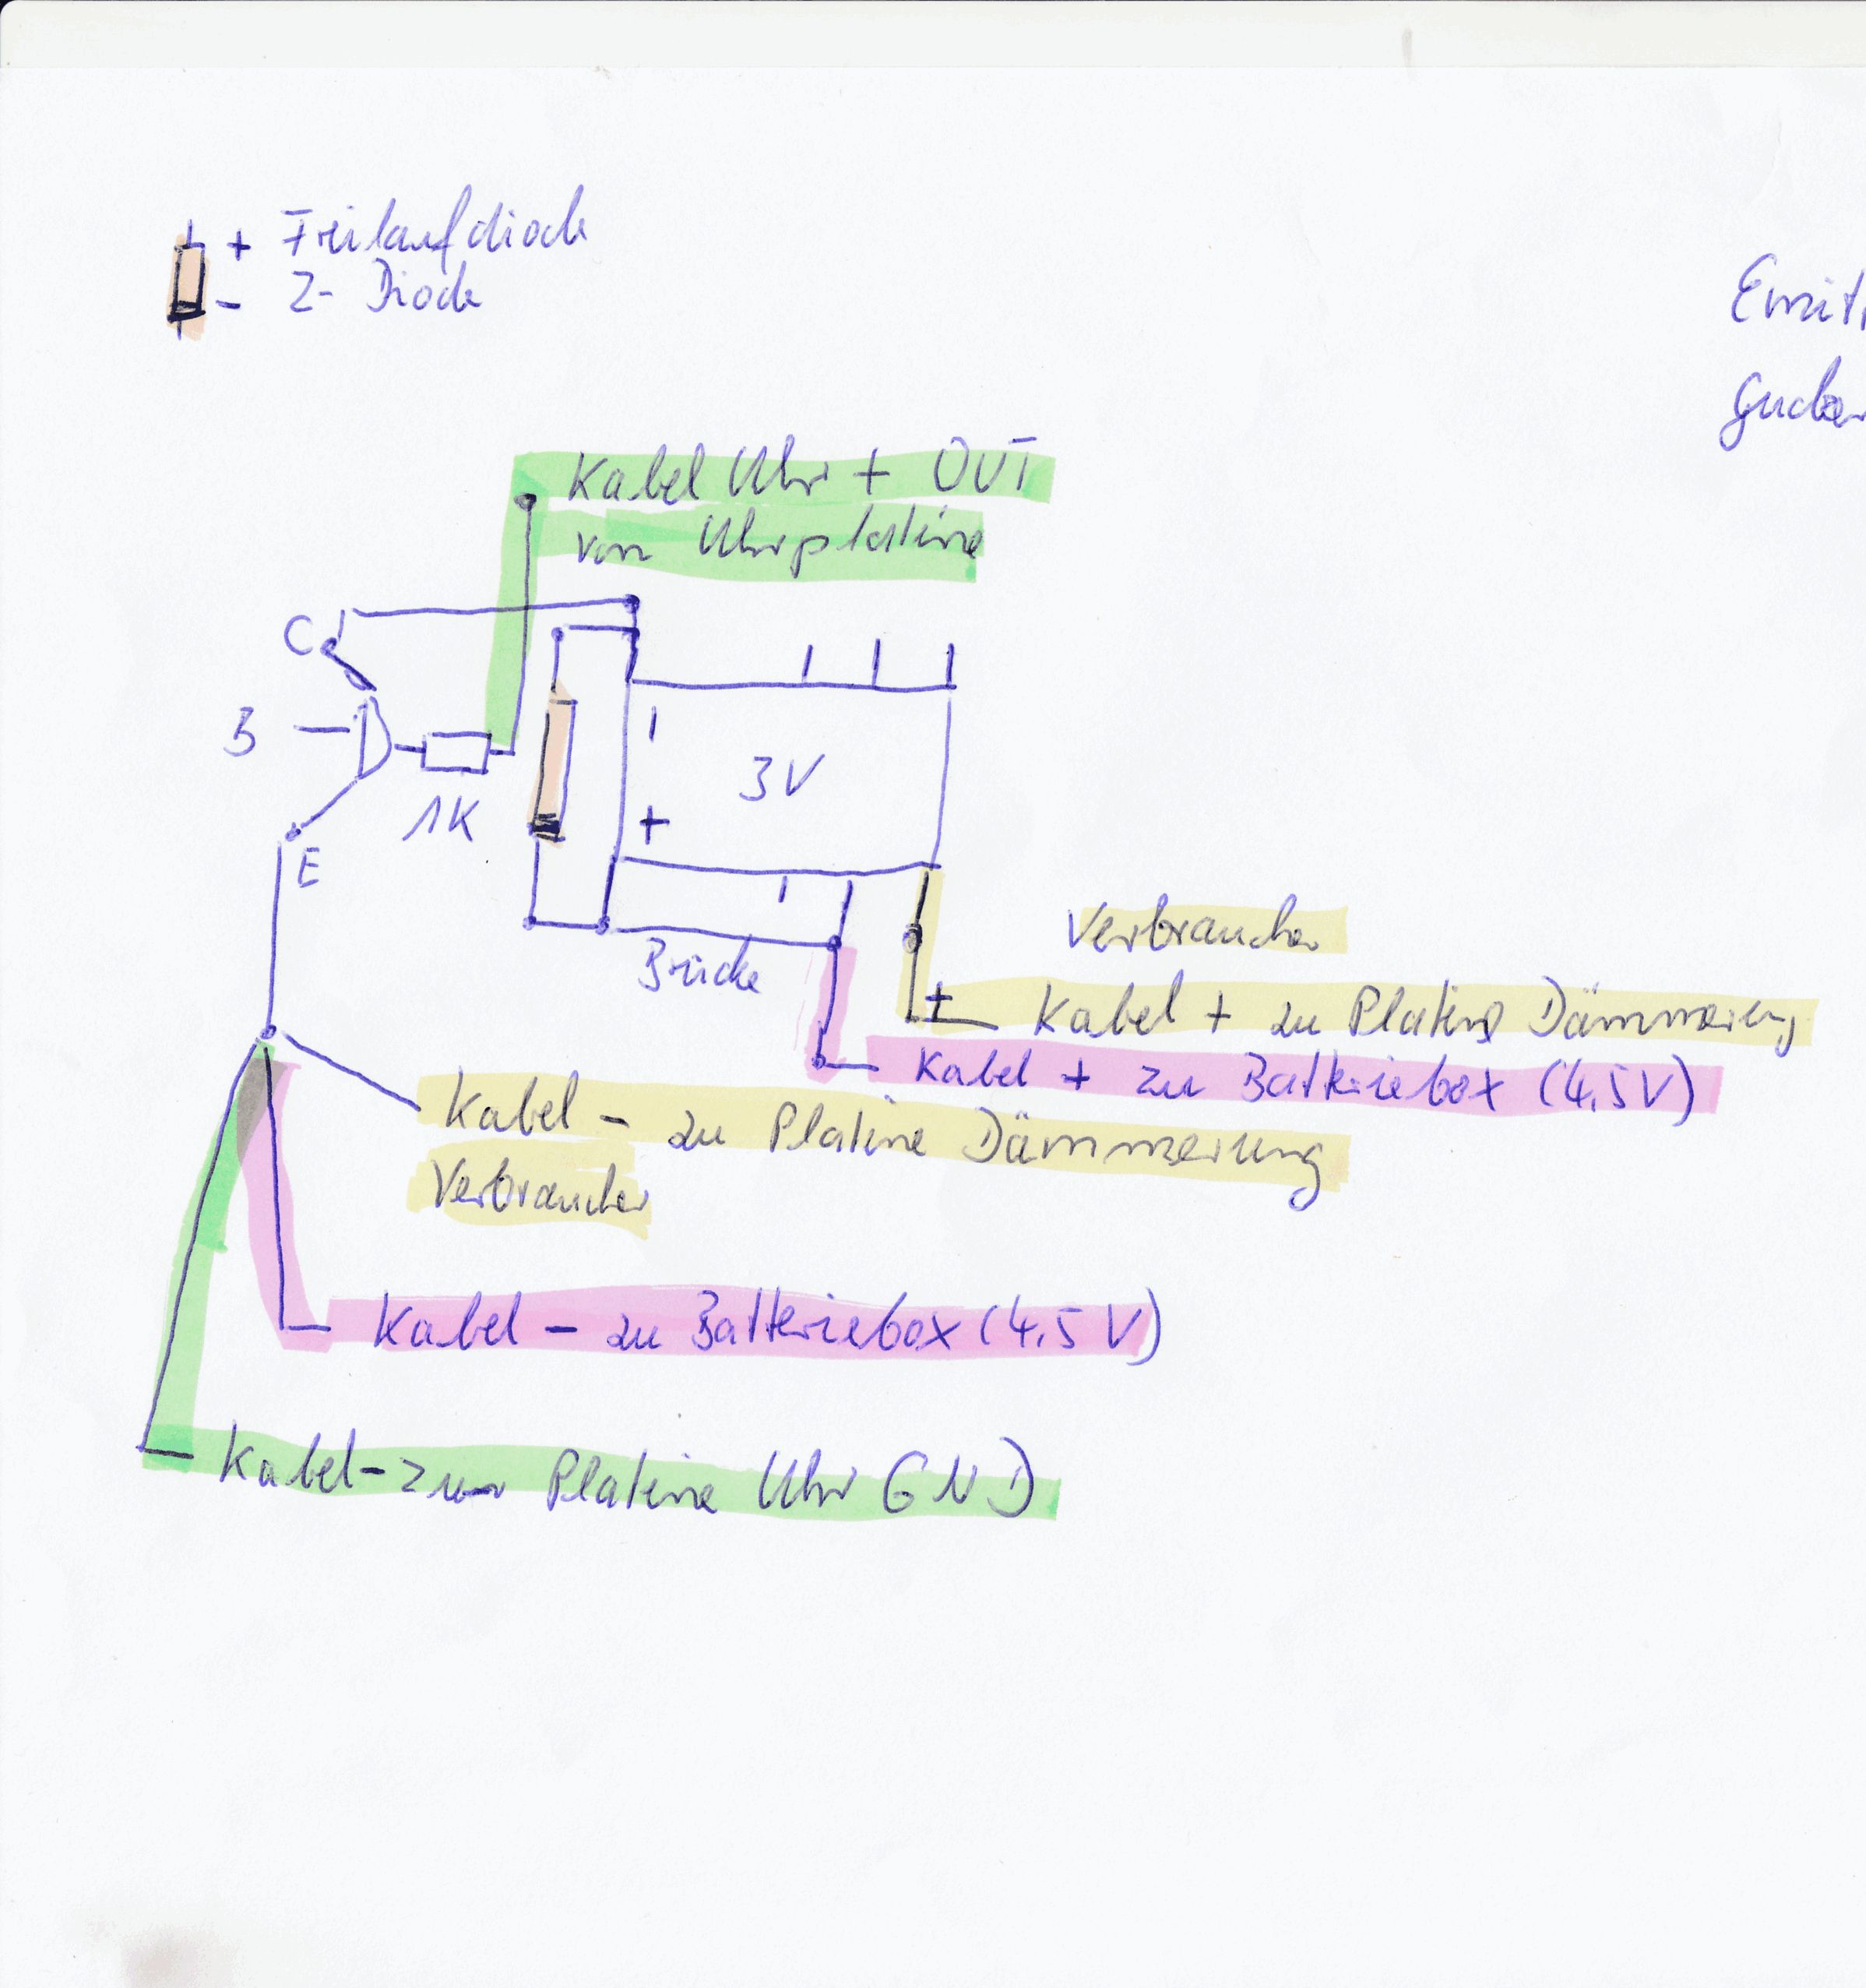 + Freilaufdiode
- Z- Diode
Kabel Uhr + OUT
von Uhrplatine
C
B
1K
E
-
3V
+
Brücke
Verbraucher
+
Kabel + zu Platine Dämmerung
Kabel + zu Batteriebox (4,5V)
Kabel - zu Platine Dämmerung
Verbraucher
Kabel - zu Batteriebox (4,5 V)
Kabel - zur Platine Uhr GND